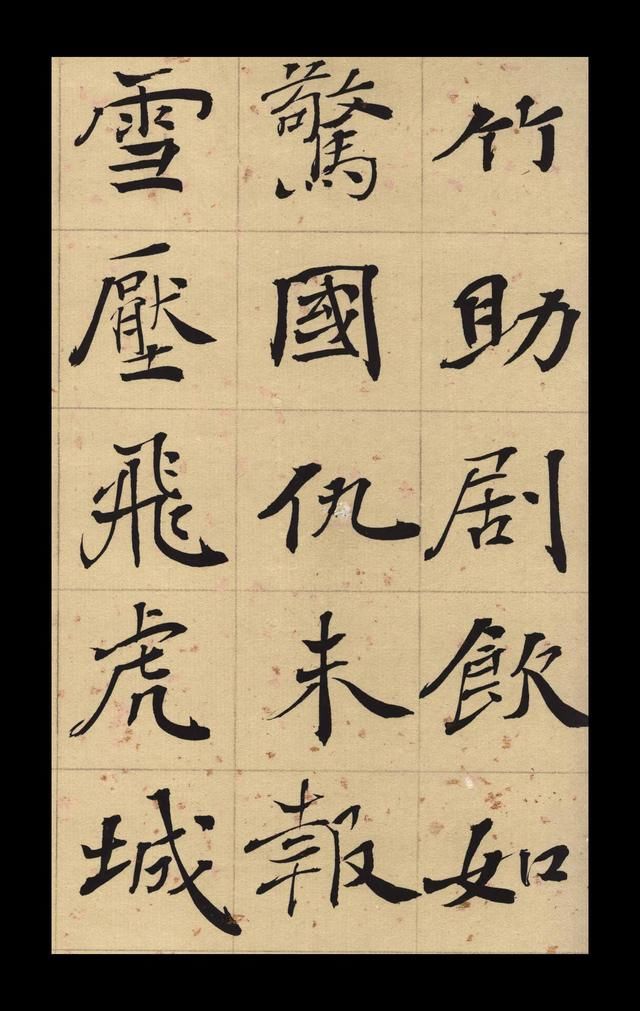 竹助剧飲如
驚國仇未報
雪壓飛虎城